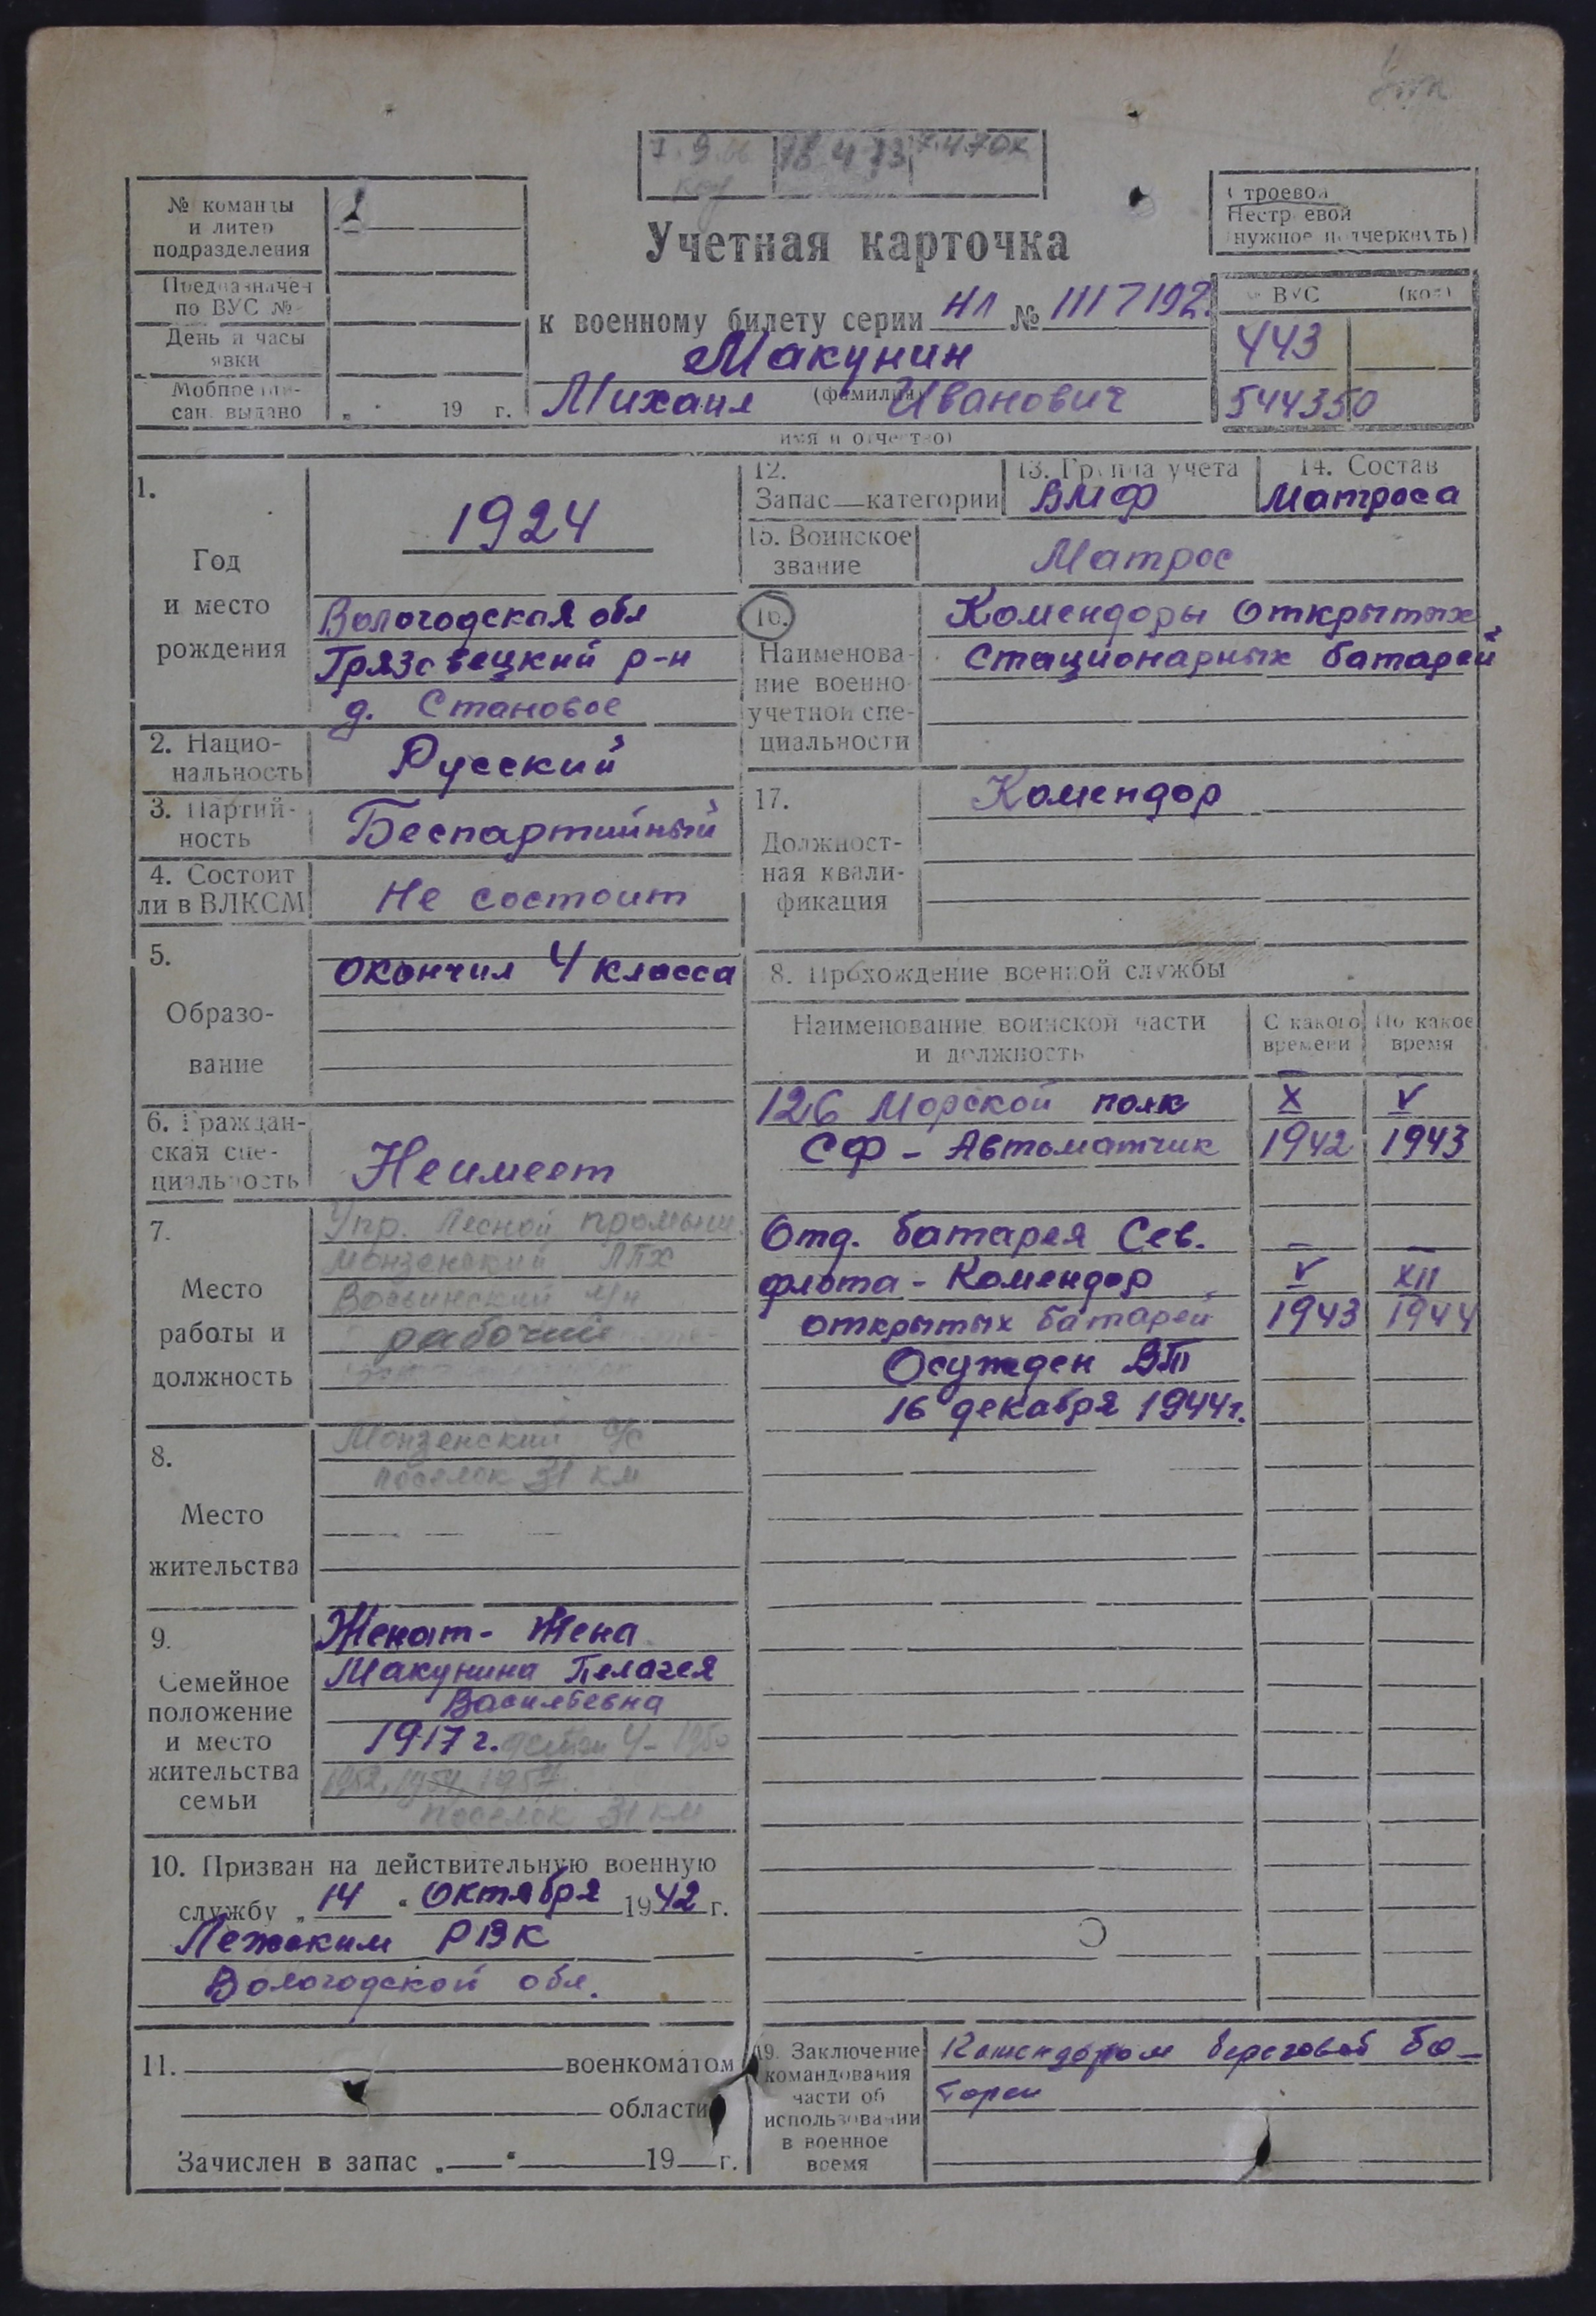 № команды
и литер
подразделения
Предназначен
по ВУС №
День и часы
явки
Мобпредпи-
сан. выдано „ " 19 г.
Учетная карточка
к военному билету серии НЛ № 1117192
Макунин
(фамилия)
Михаил Иванович
имя и отчество)
Строевой
Нестроевой
(нужное подчеркнуть)
ВУС (код)
443
544350
1.
Год
и место
рождения
1924
Вологодская обл
Грязовецкий р-н
д. Становое
2. Нацио-
нальность
Русский
3. Партий-
ность
Беспартийный
4. Состоит
ли в ВЛКСМ
Не состоит
5.
Образо-
вание
окончил 4 класса
6. Граждан-
ская спе-
циальность
Неимеет
7.
Место
работы и
должность
Упр. Лесной промышл.
Монзенский ЛПХ
рабочий
8.
Место
жительства
Монзенский с/с
поселок 31 км
9.
Семейное
положение
и место
жительства
семьи
Женат - Жена
Макунина Пелагея
Васильевна
1917 г. дети 4 - 1950
1952, 1954, 1957.
поселок 31 км
10. Призван на действительную военную
службу „ 14 " Октября 1942 г.
Лежским РВК
Вологодской обл.
11. военкоматом
области
Зачислен в запас „ " 19 г.
12.
Запас—категории
13. Группа учета
ВМФ
14. Состав
Матроса
15. Воинское
звание
Матрос
16.
Наименова-
ние военно-
учетной спе-
циальности
Комендоры Открытых
Стационарных батарей
17.
Должност-
ная квали-
фикация
Комендор
8. Прохождение военной службы
Наименование воинской части
и должность
С какого
времени
По какое
время
126 Морской полк X V
СФ - Автоматчик 1942 1943
Отд. батарея Сев.
флота - Комендор V XII
открытых батарей 1943 1944
Осужден ВТ
16 декабря 1944г.
19. Заключение
командования
части об
использовании
в военное
время
Комендором береговой ба-
тареи